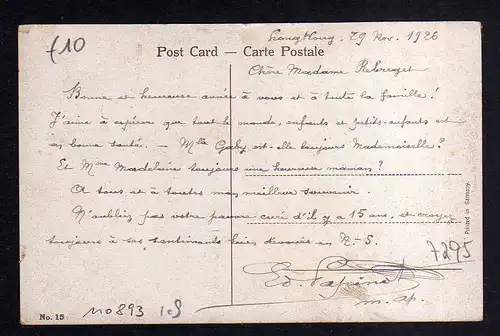 £10
Hong Kong, 29 Nov. 1926
Post Card – Carte Postale
Chère Madame
Bonne et heureuse année à vous et à toute la famille!
J'aime à espérer que tout le monde, enfants et petits-enfants est
en bonne santé. – Mlle Gaby est-elle toujours Mademoiselle?
Et Mme Madeleine toujours une heureuse maman?
A tous et à toutes mon meilleur souvenir.
N'oubliez pas votre pauvre curé d'il y a 15 ans, et croyez
toujours à ses sentiments bien dévoués en N.-S.
Ed.
m. ap.
7295
Printed in Germany.
No. 15
110893